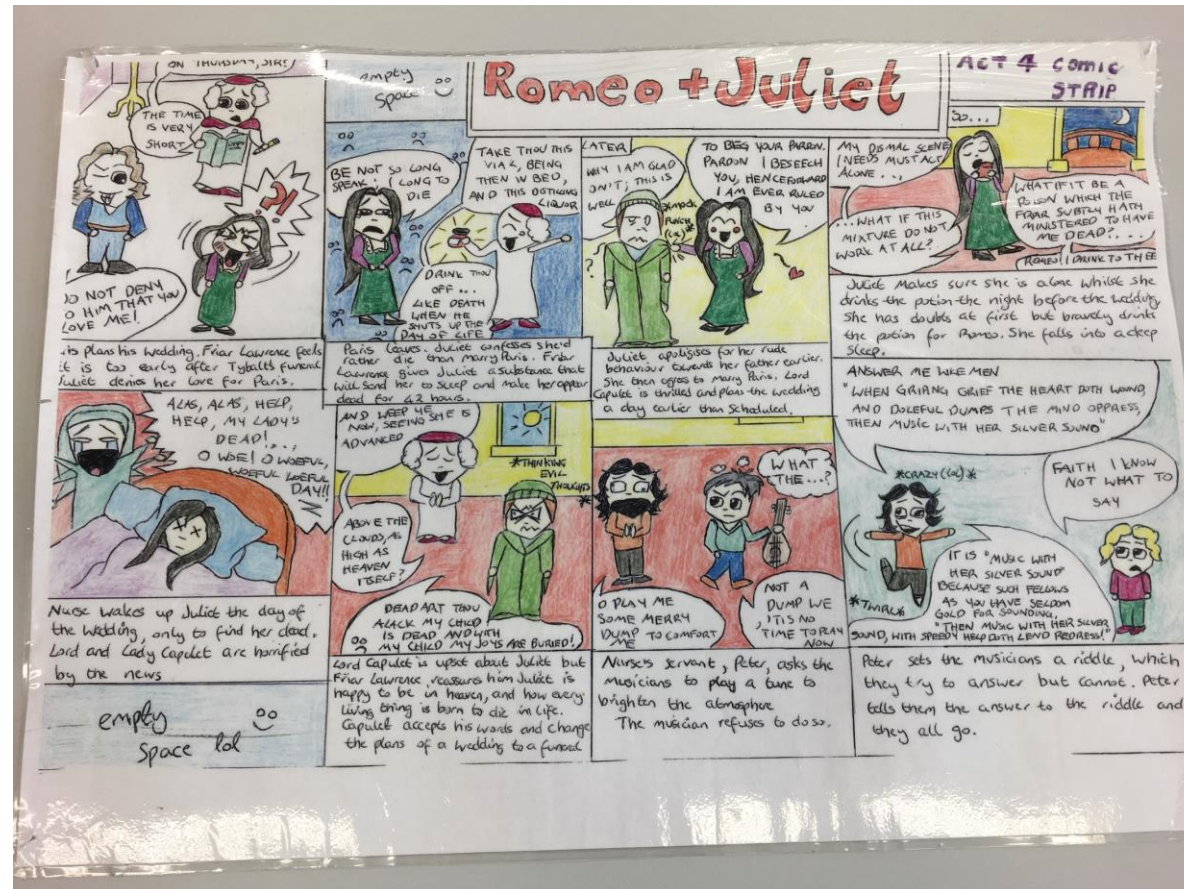 Romeo + Juliet
ACT 4 COMIC
STRIP
empty
space
ON THURSDAY, SIR?
THE TIME
IS VERY
SHORT
?!
DO NOT DENY
TO HIM THAT YOU
LOVE ME!
plans his wedding. Friar Lawrence feels
it is too early after Tybalts funeral
Juliet denies her love for Paris.
BE NOT SO LONG
SPEAK! I LONG TO
DIE
TAKE THOU THIS
VIAL, BEING
THEN IN BED,
AND THIS
LIQUOR
DRINK THOU
OFF...
LIKE DEATH
WHEN HE
SHUTS UP THE
DAY OF LIFE
Paris leaves. Juliet confesses she'd
rather die than marry Paris. Friar
Lawrence gives Juliet a substance that
will send her to sleep and make her appear
dead for 42 hours.
LATER
WHY I AM GLAD
ON'T; THIS IS
WELL
PUNCH
(lol)*
TO BEG YOUR PARDON.
PARDON I BESEECH
YOU, HENCEFORWARD
I AM EVER RULED
BY YOU
?
Juliet apoligises for her rude
behaviour towards her father earlier.
She then agrees to marry Paris. Lord
Capulet is thrilled and plans the wedding
a day earlier than scheduled.
SO...
MY DISMAL SCENE
I NEEDS MUST ACT
ALONE...
...WHAT IF THIS
MIXTURE DO NOT
WORK AT ALL?
WHAT IF IT BE A
POISON WHICH THE
FRIAR SUBTLY HATH
MINISTERED TO HAVE
ME DEAD?...
ROMEO! I DRINK TO THEE
Juliet Makes sure she is alone whilst she
drinks the potion the night before the wedding
She has doubts at first but bravely drinks
the potion for Romeo. She falls into a deep
sleep.
ALAS, ALAS, HELP,
HELP, MY LADY'S
DEAD!...
O WOE! O WOEFUL,
WOEFUL WOEFUL
DAY!!
Nurse wakes up Juliet the day of
the wedding, only to find her dead.
Lord and Lady Capulet are horrified
by the news
AND WEEP YE
NOW, SEEING SHE IS
ADVANCED
ABOVE THE
CLOUDS, AS
HIGH AS
HEAVEN
ITSELF?
*THINKING
EVIL
THOUGHTS
*
DEAD ART THOU
ALACK MY CHILD
IS DEAD AND WITH
MY CHILD MY JOYS ARE BURIED!
Lord Capulet is upset about Juliet but
Friar Lawrence reassures him Juliet is
happy to be in heaven, and how every
living thing is born to die in life.
Capulet accepts his words and change
the plans of a wedding to a funeral
WHAT
THE...?
O PLAY ME
SOME MERRY
DUMP TO COMFORT
ME
NOT A
DUMP WE
, IT IS NO
TIME TO PLAY
NOW
Nurses servant, Peter, asks the
musicians to play a tune to
brighten the atmosphere
The musician refuses to do so.
ANSWER ME LIKE MEN
"WHEN GRIPING GRIEF THE HEART DOTH WOUND,
AND DOLEFUL DUMPS THE MIND OPPRESS,
THEN MUSIC WITH HER SILVER SOUND"
*CRAZY (lol)*
FAITH I KNOW
NOT WHAT TO
SAY
*TWIRL*
IT IS "MUSIC WITH
HER SILVER SOUND"
BECAUSE SUCH FELLOWS
AS YOU HAVE SELDOM
GOLD FOR SOUNDING.
"THEN MUSIC WITH HER SILVER
SOUND, WITH SPEEDY HELP DOTH LEND REDRESS!"
Peter sets the musicians a riddle, which
they try to answer but cannot. Peter
tells them the answer to the riddle and
they all go.
empty
space lol